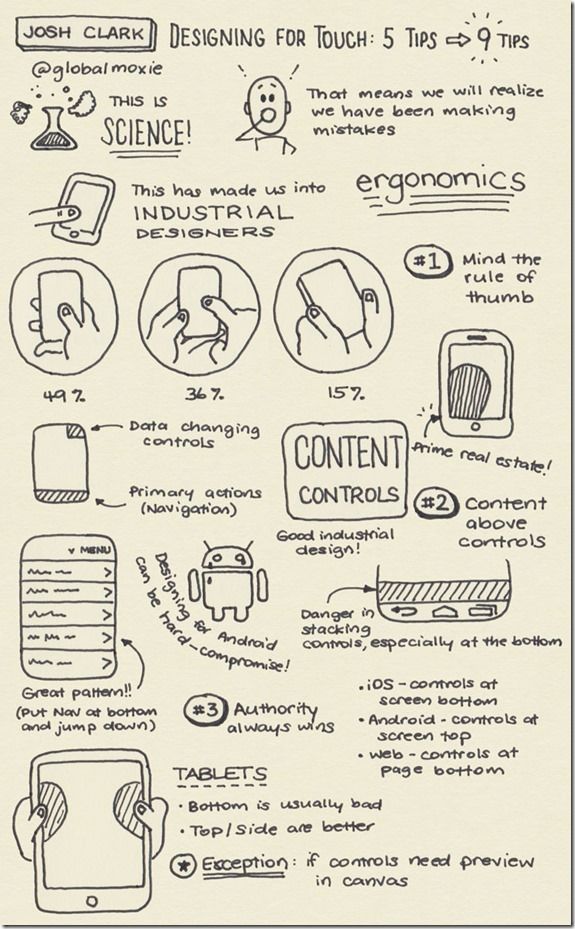 JOSH CLARK
DESIGNING FOR TOUCH: 5 TIPS ⇨ 9 TIPS
@globalmoxie
THIS IS
SCIENCE!
That means we will realize
we have been making
mistakes
This has made us into
INDUSTRIAL
DESIGNERS
ergonomics
#1 Mind the
rule of
thumb
49%
36%
15%
Prime real estate!
Data changing
controls
Primary actions
(Navigation)
CONTENT
CONTROLS
Good industrial
design!
#2 Content
above
controls
▾ MENU
Great pattern!!
(Put Nav at bottom
and jump down)
Designing for Android
can be hard-compromise!
Danger in
stacking
controls, especially at the bottom
#3 Authority
always wins
• iOS - controls at
screen bottom
• Android - controls at
screen top
• Web - controls at
page bottom
TABLETS
• Bottom is usually bad
• Top/Side are better
* Exception: if controls need preview
in canvas